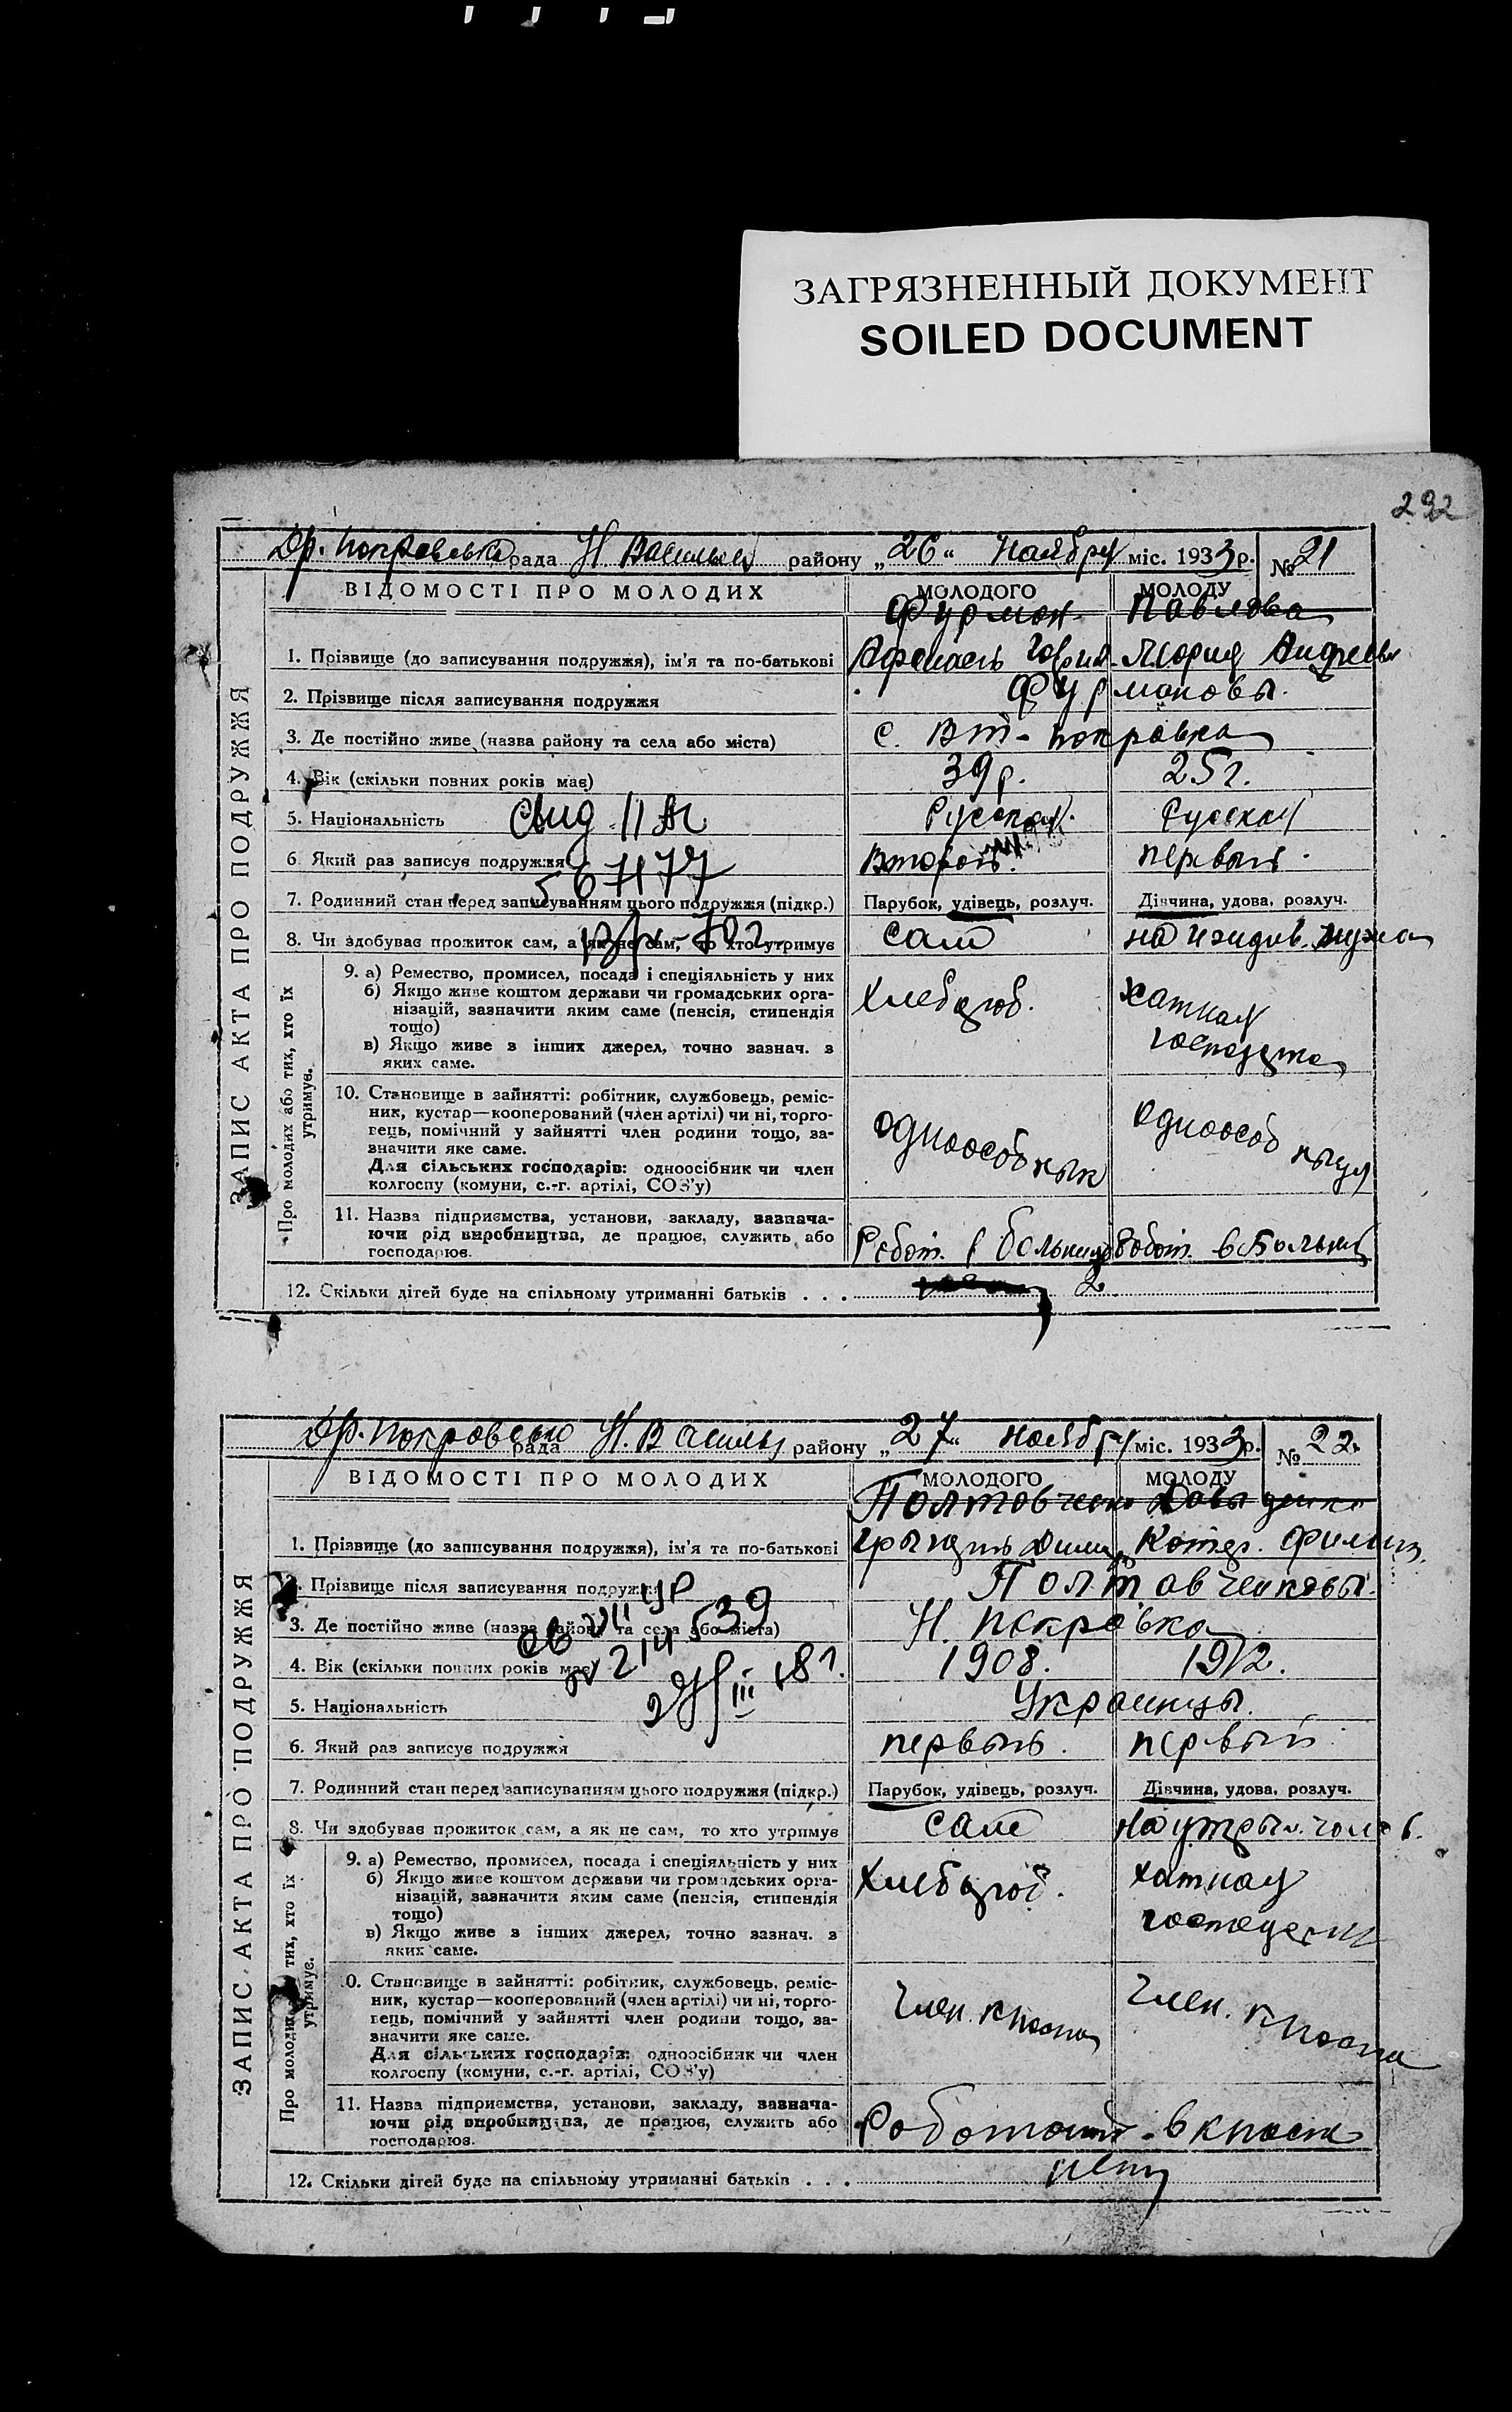 ЗАГРЯЗНЕННЫЙ ДОКУМЕНТ
SOILED DOCUMENT
292
Др. Покровська рада Н. Васильев району „26“ Ноября міс. 1933 р. № 21
ВІДОМОСТІ ПРО МОЛОДИХ МОЛОДОГО МОЛОДУ
ЗАПИС АКТА ПРО ПОДРУЖЖЯ
Фурман Павлова
1. Прізвище (до записування подружжя), ім'я та по-батькові Афонась Гаврил. Мария Андреевн
2. Прізвище після записування подружжя Фурмановы.
3. Де постійно живе (назва району та села або міста) с. Вт-покравка
4. Вік (скільки повних років має) 39 р. 25 г.
5. Національність Русской. Русская
6. Який раз записує подружжя Второй. первый.
567177
7. Родинний стан перед записуванням цього подружжя (підкр.) Парубок, удівець, розлуч. Дівчина, удова, розлуч.
8. Чи здобував прожиток сам, а як не сам, то хто утримує сам на иждив. мужа
Про молодих або тих, хто їх утримує.
9. а) Ремество, промисел, посада і спеціяльність у них
б) Якщо живе коштом держави чи громадських орга-
нізацій, зазначити яким саме (пенсія, стипендія
тощо)
в) Якщо живе з інших джерел, точно зазнач. з
яких саме.
Хлебороб. хатная
10. Становище в зайнятті: робітник, службовець, реміс-
ник, кустар—кооперований (член артілі) чи ні, торго-
вець, помічний у зайнятті член родини тощо, за-
значити яке саме.
Для сільських господарів: одноосібник чи член
колгоспу (комуни, с.-г. артілі, СОЗ'у)
одноособнык одноособныця
11. Назва підприємства, установи, закладу, зазнача-
ючи рід виробництва, де працює, служить або
господарює.
Робот. в больнице Робот. в больниц
12. Скільки дітей буде на спільному утриманні батьків . . . 2
Др. Покровсько рада Н. Василь району „27“ ноября міс. 1933 р. № 22
ВІДОМОСТІ ПРО МОЛОДИХ МОЛОДОГО МОЛОДУ
ЗАПИС АКТА ПРО ПОДРУЖЖЯ
Полтовченко Довыденко
1. Прізвище (до записування подружжя), ім'я та по-батькові Котер. Филип.
2. Прізвище після записування подружжя Полтовченковы.
3. Де постійно живе (назва району та села або міста) Н. покровка
214539
4. Вік (скільки повних років має) 1908. 1912.
5. Національність Украинцы.
6. Який раз записує подружжя первый. первый
7. Родинний стан перед записуванням цього подружжя (підкр.) Парубок, удівець, розлуч. Дівчина, удова, розлуч.
8. Чи здобував прожиток сам, а як не сам, то хто утримує сам на утрым. чолов.
Про молодих або тих, хто їх утримує.
9. а) Ремество, промисел, посада і спеціяльність у них
б) Якщо живе коштом держави чи громадських орга-
нізацій, зазначити яким саме (пенсія, стипендія
тощо)
в) Якщо живе з інших джерел, точно зазнач. з
яких саме.
Хлебороб. хатная
10. Становище в зайнятті: робітник, службовець, реміс-
ник, кустар—кооперований (член артілі) чи ні, торго-
вець, помічний у зайнятті член родини тощо, за-
значити яке саме.
Для сільських господарів: одноосібник чи член
колгоспу (комуни, с.-г. артілі, СОЗ'у)
Член. Член.
11. Назва підприємства, установи, закладу, зазнача-
ючи рід виробництва, де працює, служить або
господарює.
12. Скільки дітей буде на спільному утриманні батьків . . . нет